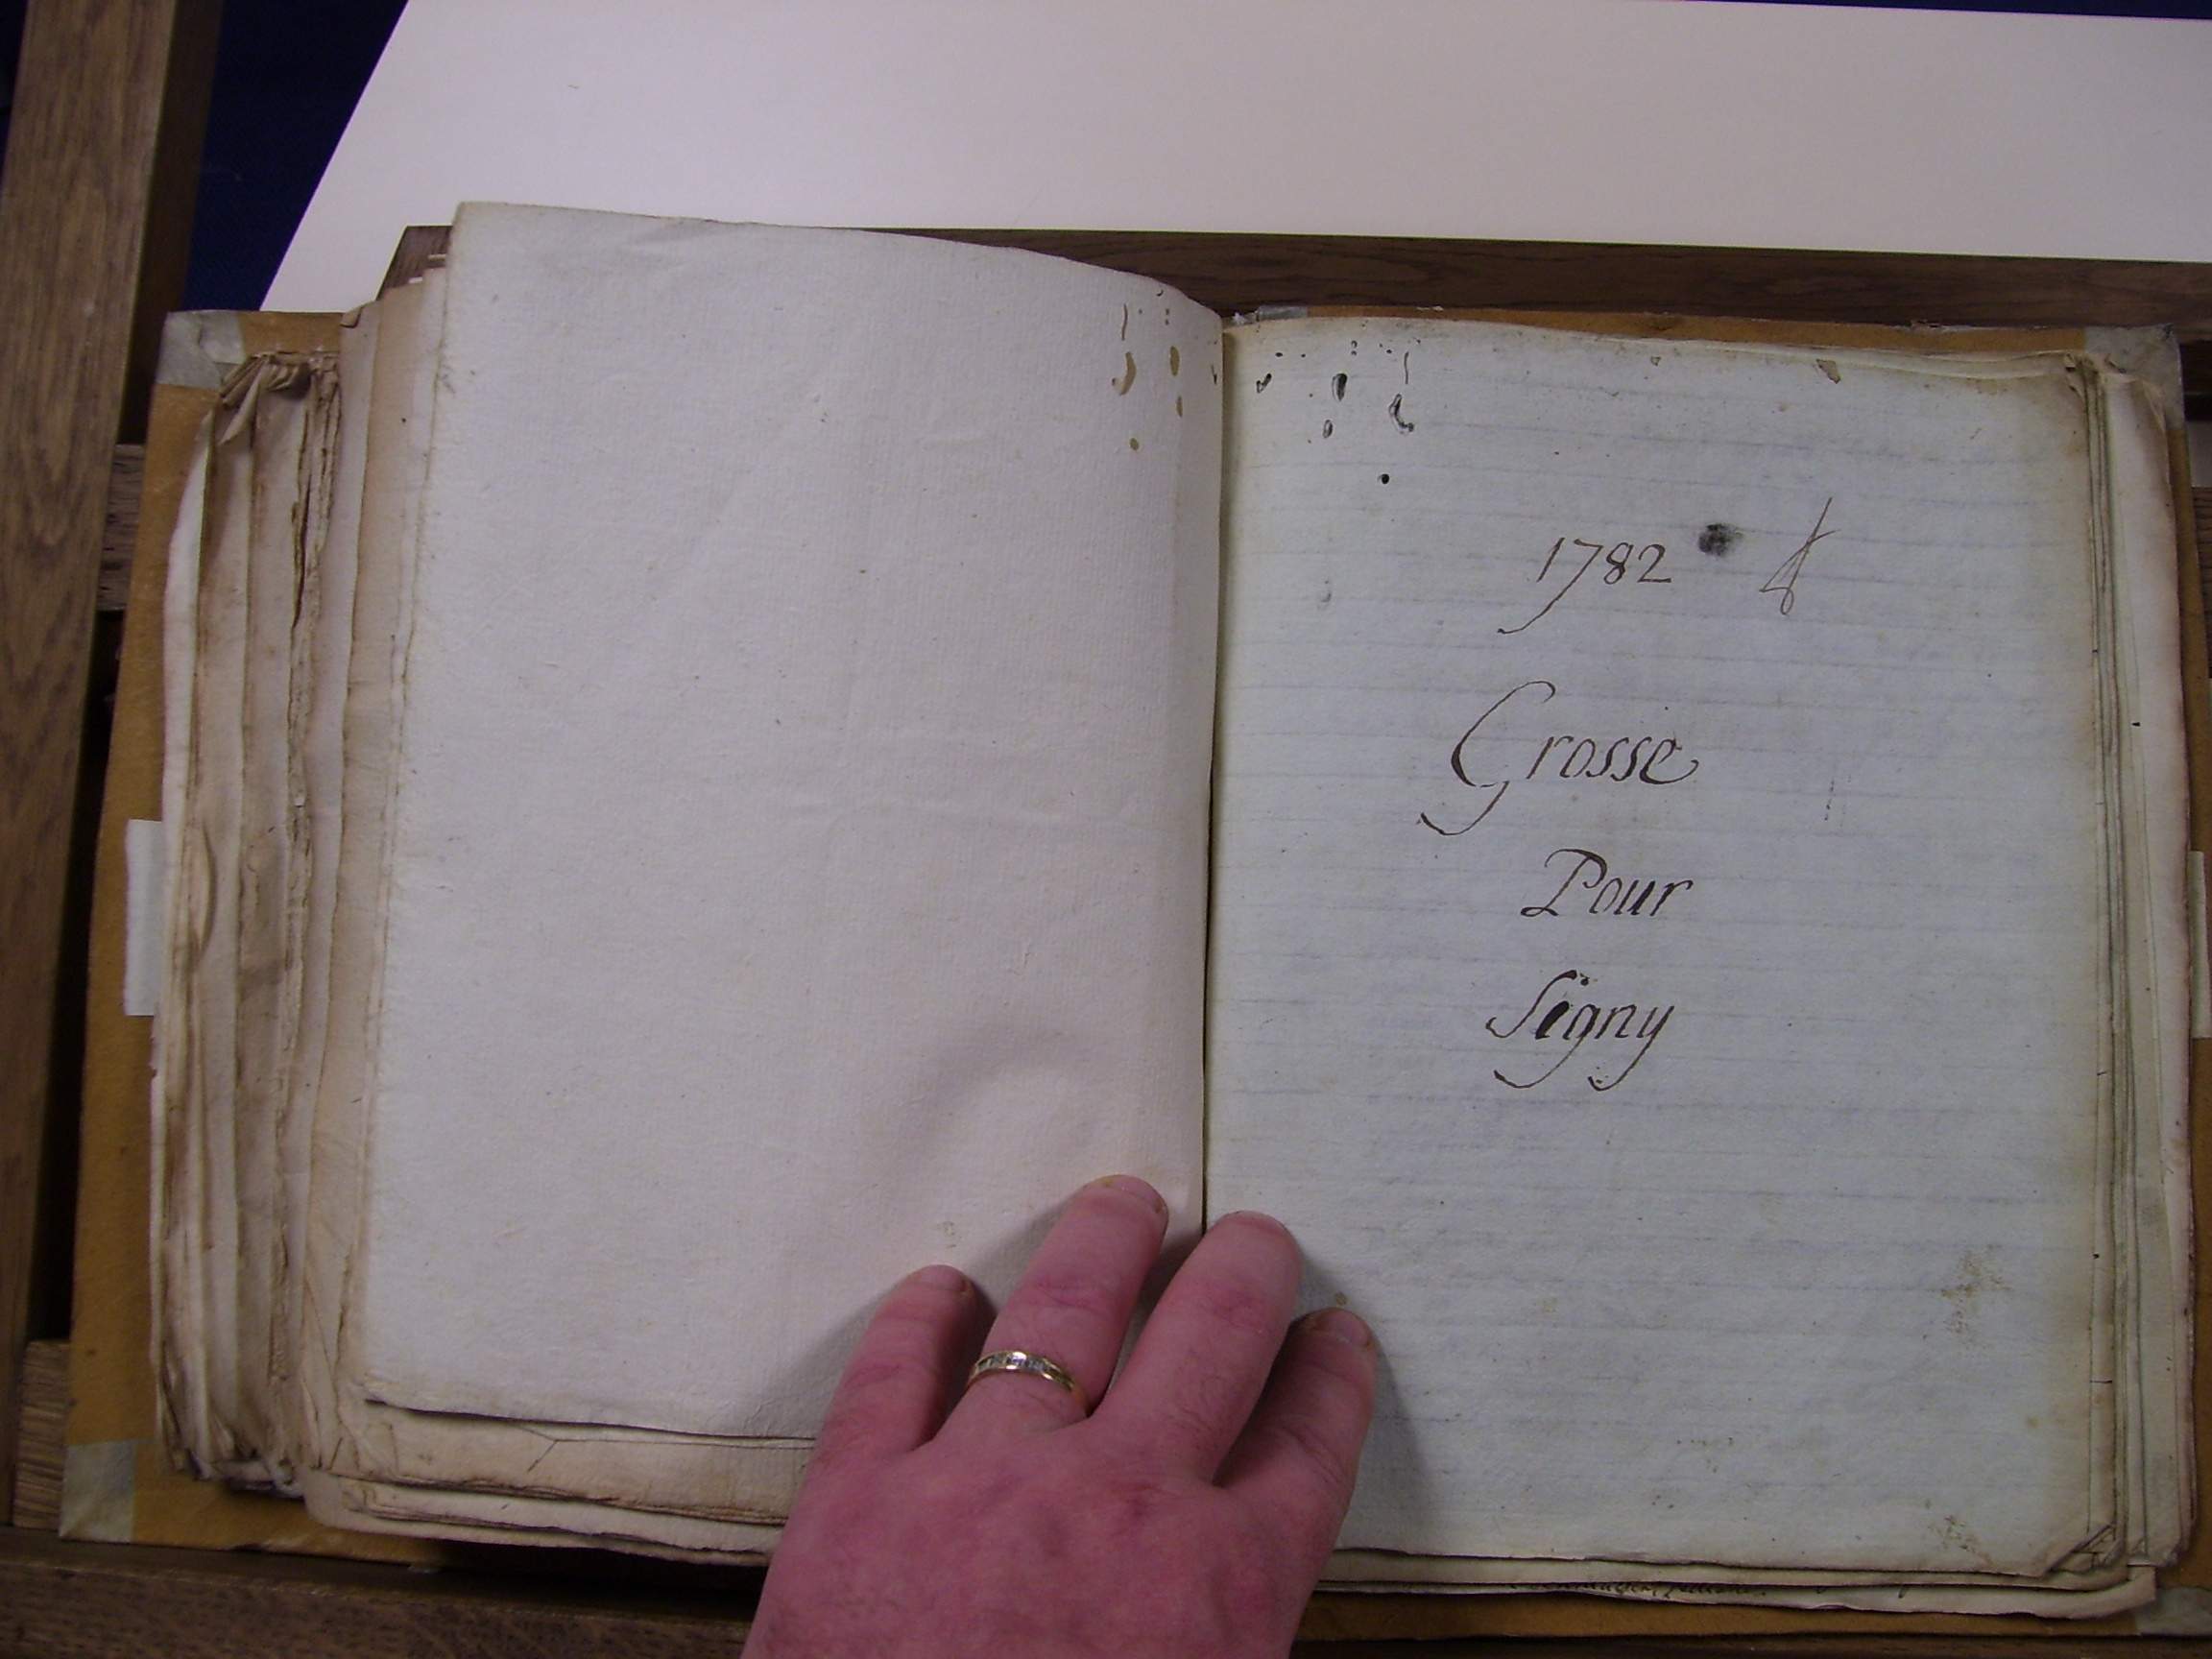 1782
Grosse
Pour
Signy